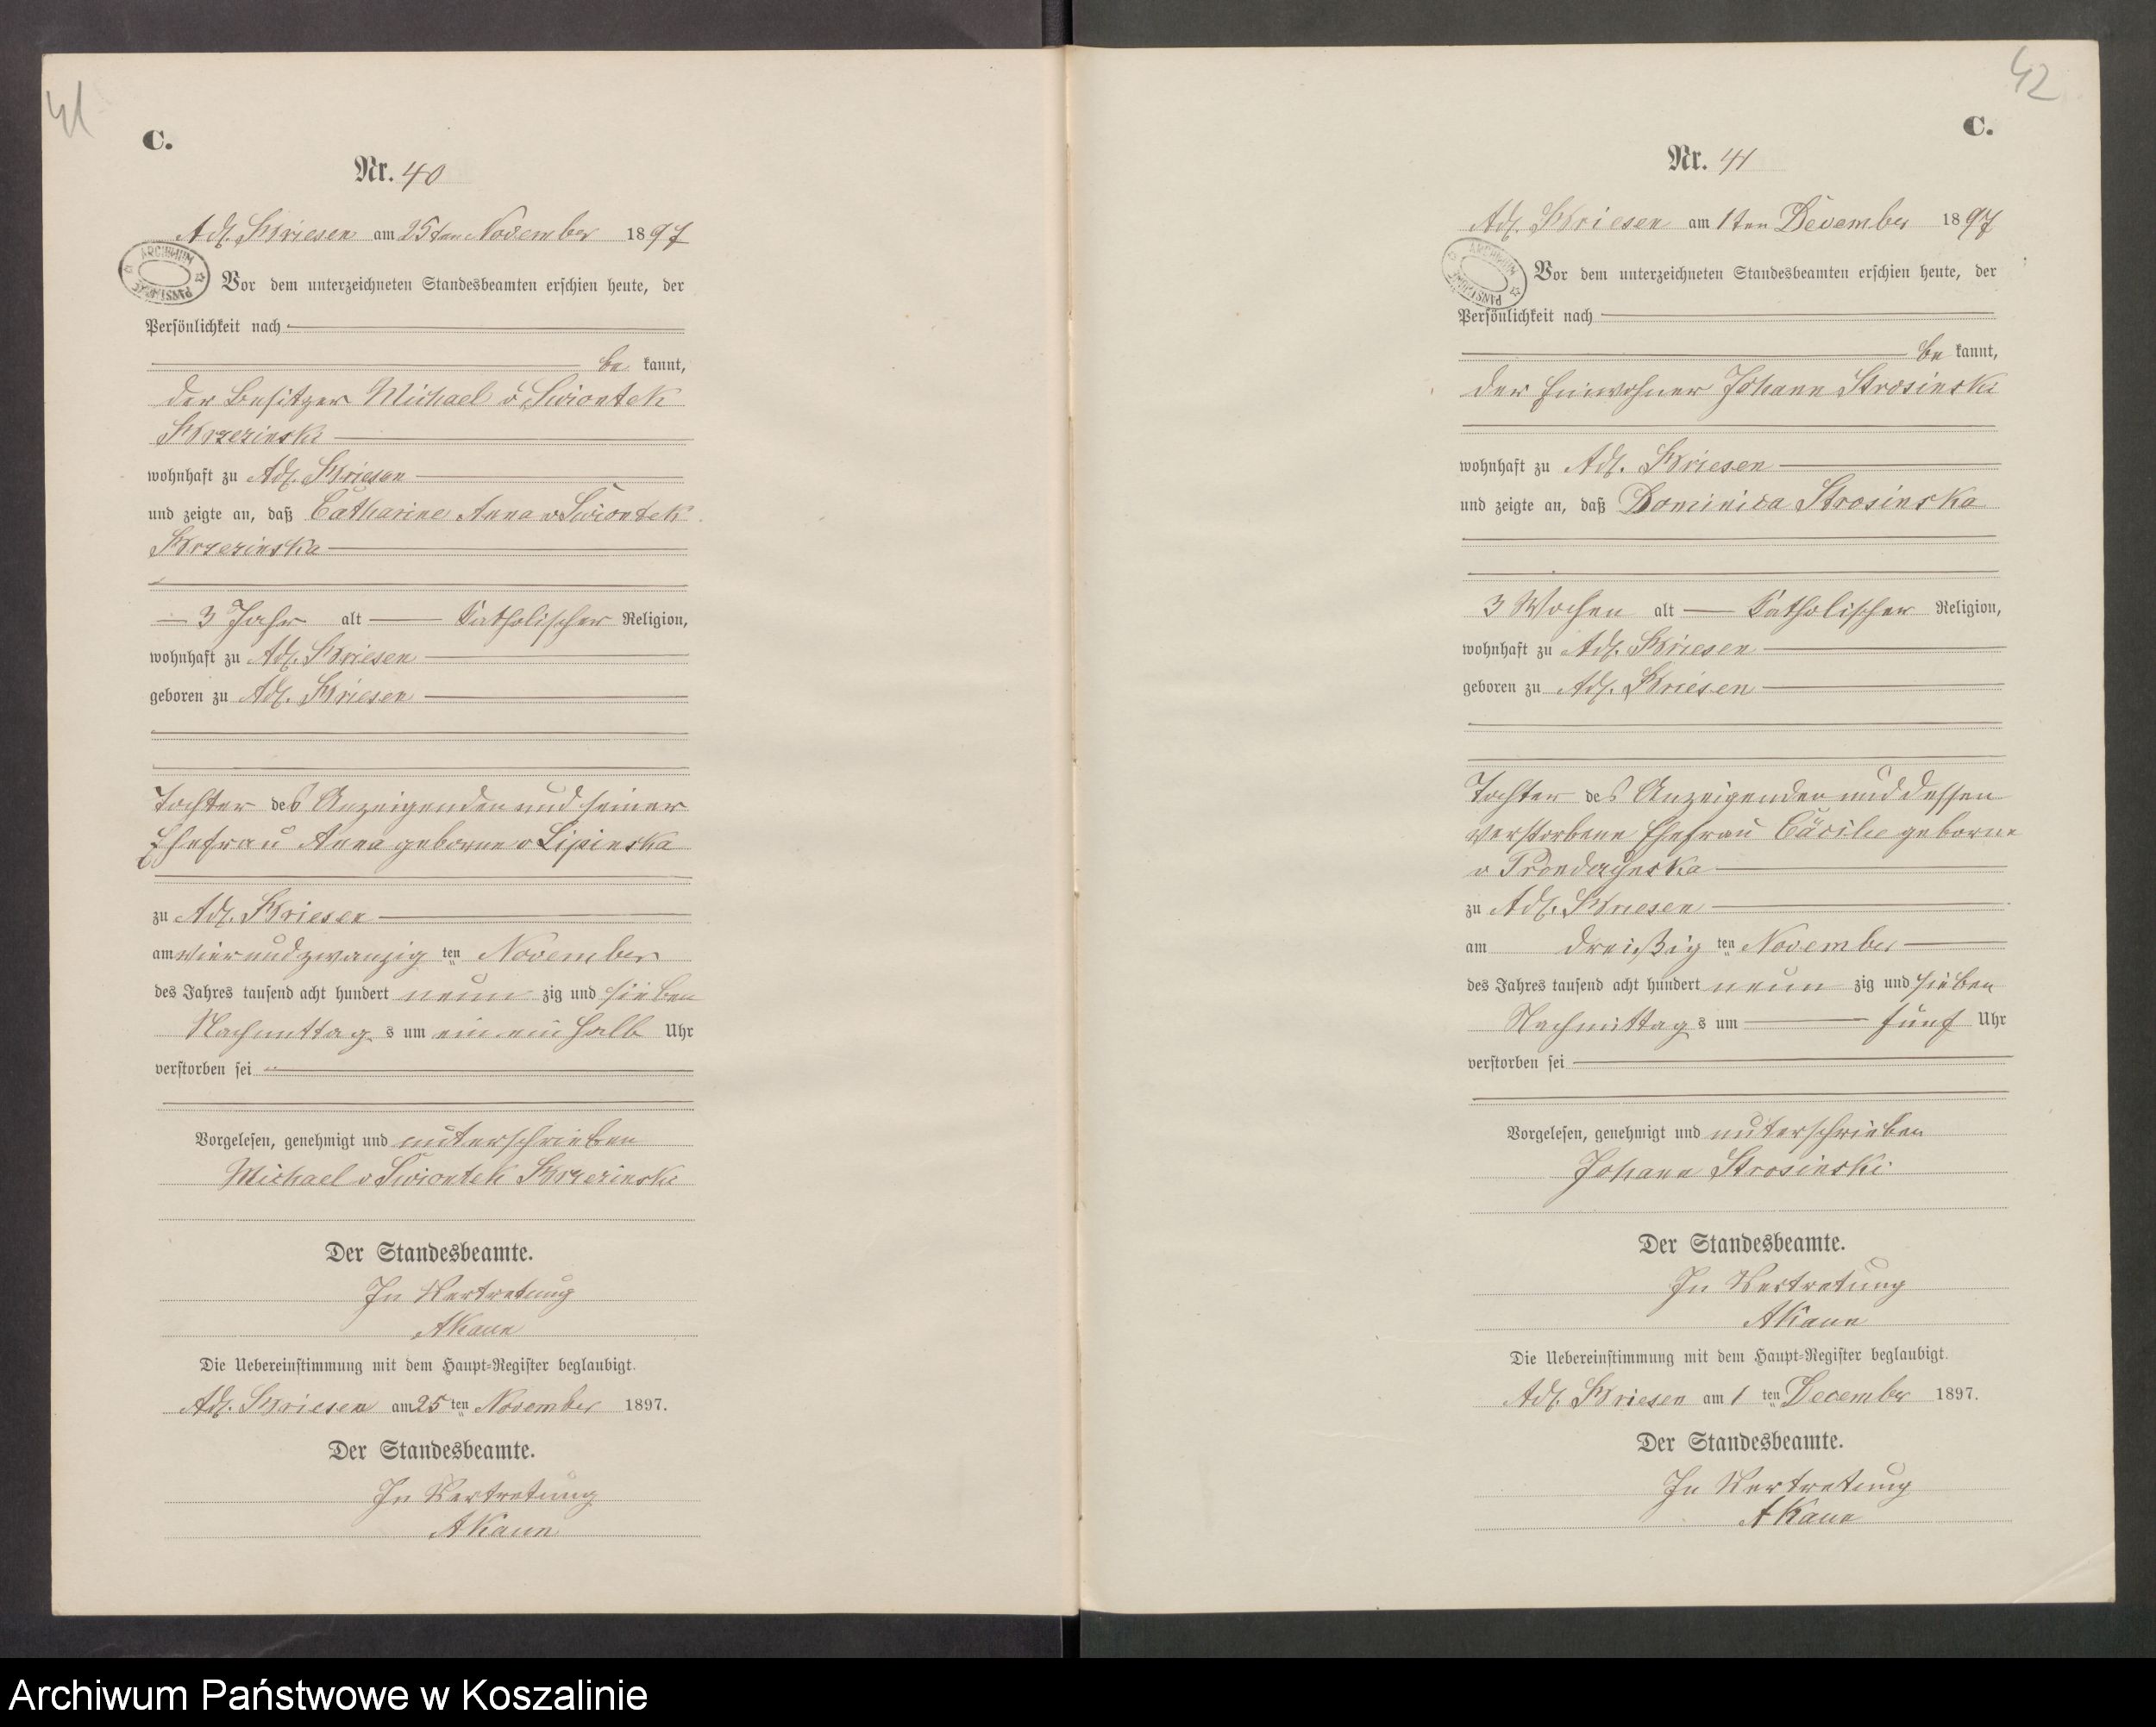 41
C.
Nr. 40
Adl. Briesen am 25ten November 1897
ARCHIWUM PAŃSTWOWE
Vor dem unterzeichneten Standesbeamten erschien heute, der
Persönlichkeit nach
be kannt,
der Besitzer Michael v Swiontek
Brzezinski
wohnhaft zu Adl. Briesen
und zeigte an, daß Catharine Anna v Swiontek
Brzezinska
3 Jahr alt katholischer Religion,
wohnhaft zu Adl. Briesen
geboren zu Adl. Briesen
Tochter des Anzeigenden und seiner
Ehefrau Anna geborne v Lipinska
zu Adl. Briesen
am vierundzwanzig ten November
des Jahres tausend acht hundert neun zig und sieben
Nachmittag s um ein ein halb Uhr
verstorben sei
Vorgelesen, genehmigt und unterschrieben
Michael v Swiontek Brzezinski
Der Standesbeamte.
In Vertretung
AKaun
Die Uebereinstimmung mit dem Haupt-Register beglaubigt.
Adl. Briesen am 25 ten November 1897.
Der Standesbeamte.
In Vertretung
AKaun
42
C.
Nr. 41
Adl. Briesen am 1ten December 1897
ARCHIWUM PAŃSTWOWE
Vor dem unterzeichneten Standesbeamten erschien heute, der
Persönlichkeit nach
be kannt,
der Einwohner Johann Strosinski
wohnhaft zu Adl. Briesen
und zeigte an, daß Dominica Strosinska
3 Wochen alt katholischer Religion,
wohnhaft zu Adl. Briesen
geboren zu Adl. Briesen
Tochter des Anzeigenden und dessen
verstorbene Ehefrau Cäcilie geborne
v
zu Adl. Briesen
am dreißig ten November
des Jahres tausend acht hundert neun zig und sieben
Nachmittag s um fünf Uhr
verstorben sei
Vorgelesen, genehmigt und unterschrieben
Johann Strosinski
Der Standesbeamte.
In Vertretung
AKaun
Die Uebereinstimmung mit dem Haupt-Register beglaubigt.
Adl. Briesen am 1 ten December 1897.
Der Standesbeamte.
In Vertretung
AKaun
Archiwum Państwowe w Koszalinie